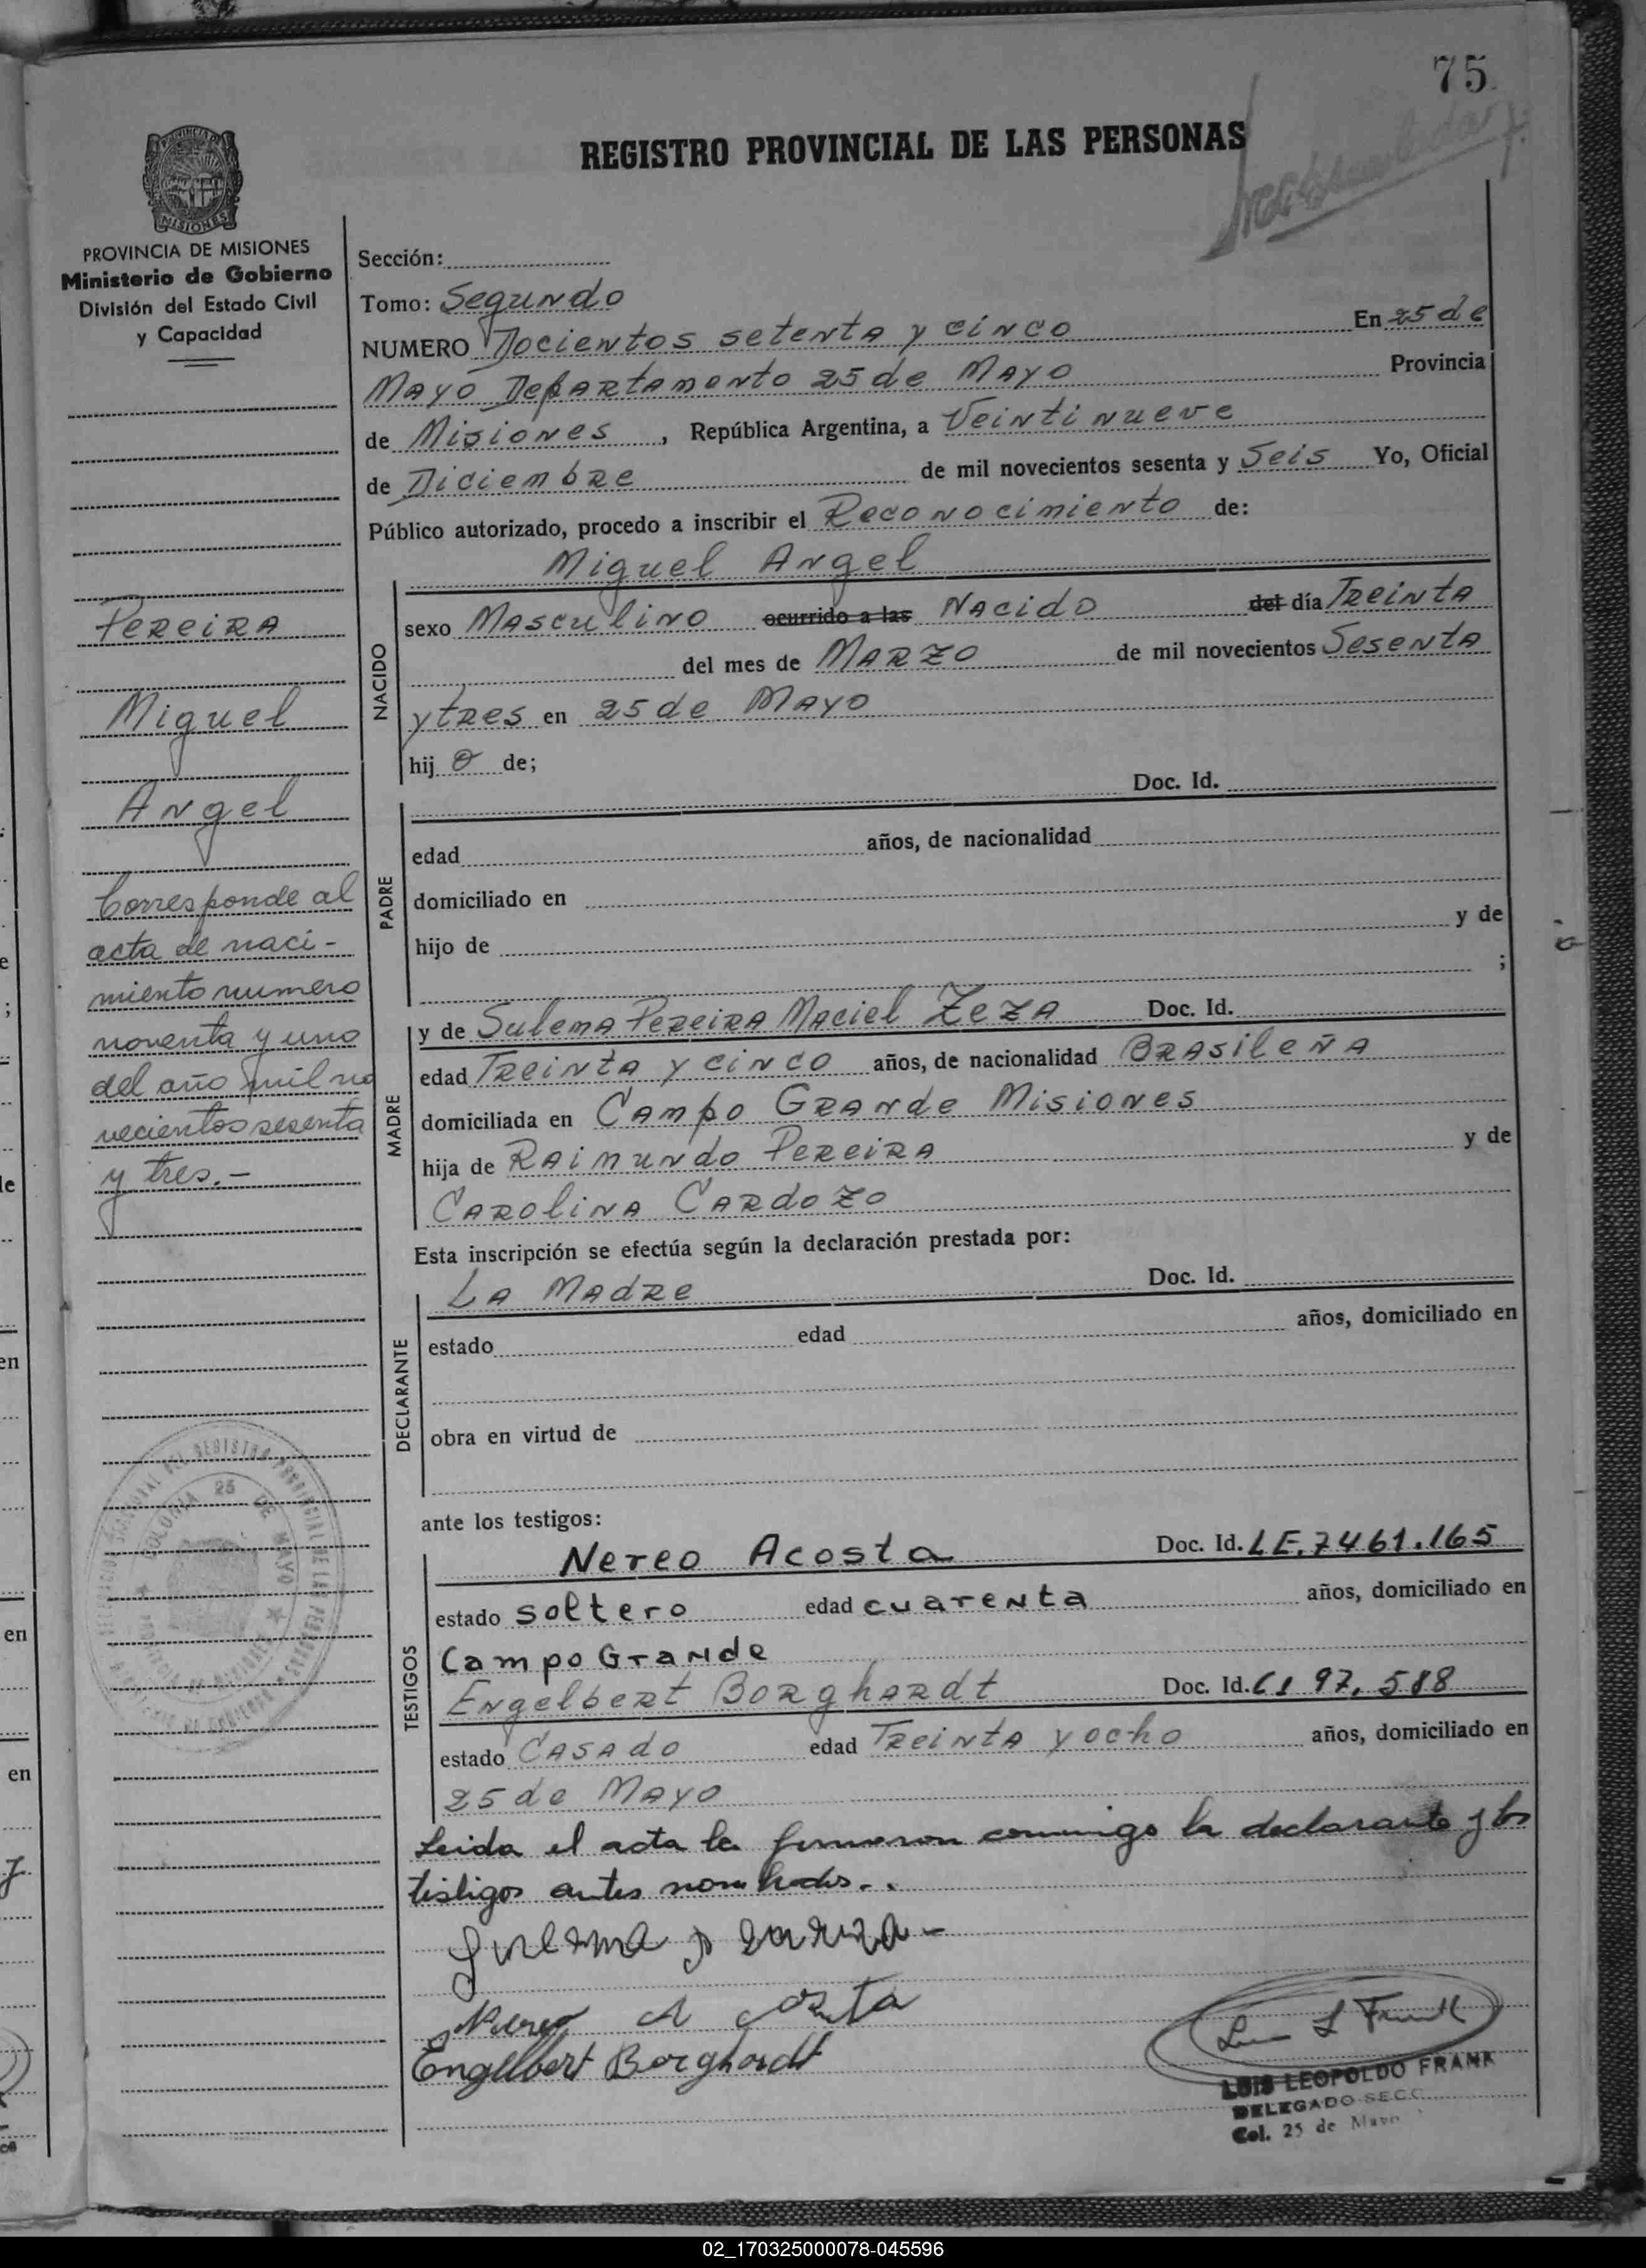 75
REGISTRO PROVINCIAL DE LAS PERSONAS
PROVINCIA DE MISIONES
Ministerio de Gobierno
División del Estado Civil
y Capacidad
Pereira
Miguel
Angel
Corresponde al
acta de naci-
miento numero
noventa y uno
del año mil no
vecientos sesenta
y tres.-
Sección:
Tomo: Segundo
NUMERO Docientos setenta y cinco En 25 de
Mayo Departamento 25 de Mayo Provincia
de Misiones, República Argentina, a Veintinueve
de Diciembre de mil novecientos sesenta y Seis Yo, Oficial
Público autorizado, procedo a inscribir el Reconocimiento de:
Miguel Angel
NACIDO
sexo Masculino ocurrido a las Nacido del día Treinta
del mes de Marzo de mil novecientos Sesenta
y tres en 25 de Mayo
hij o de;
PADRE
Doc. Id.
edad años, de nacionalidad
domiciliado en
hijo de y de
;
MADRE
y de Sulema Pereira Maciel Zeza Doc. Id.
edad Treinta y cinco años, de nacionalidad Brasileña
domiciliada en Campo Grande Misiones
hija de Raimundo Pereira y de
Carolina Cardozo
Esta inscripción se efectúa según la declaración prestada por:
DECLARANTE
La Madre Doc. Id.
estado edad años, domiciliado en
obra en virtud de
ante los testigos:
TESTIGOS
Nereo Acosta Doc. Id. LE. 7461.165
estado soltero edad cuarenta años, domiciliado en
Campo Grande
Engelbert Borghardt Doc. Id. CI 97.588
estado Casado edad Treinta y ocho años, domiciliado en
25 de Mayo
Leida el acta la firmaron conmigo la declarante y los
testigos antes nombrados..
Nereo Acosta
Engelbert Borghardt
LUIS LEOPOLDO FRANK
DELEGADO SECC.
Col. 25 de Mayo
COLONIA 25 DE MAYO
02_170325000078-045596